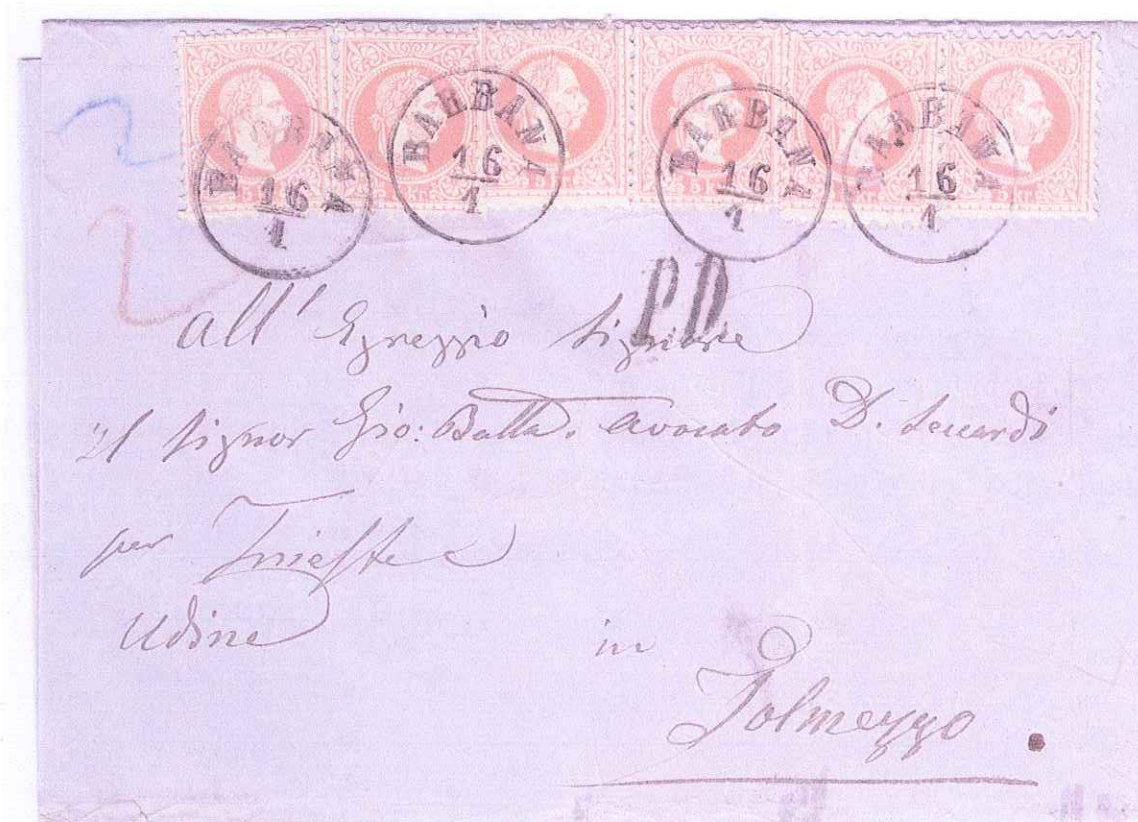 BARBANA
16
1
BARBANA
16
1
BARBANA
16
1
BARBANA
16
1
5 kr.
2
2
P.D.
all' Egreggio Signore
il Signor Gio: Batta. Avvocato D.
per Trieste
Udine
in
Tolmezzo.